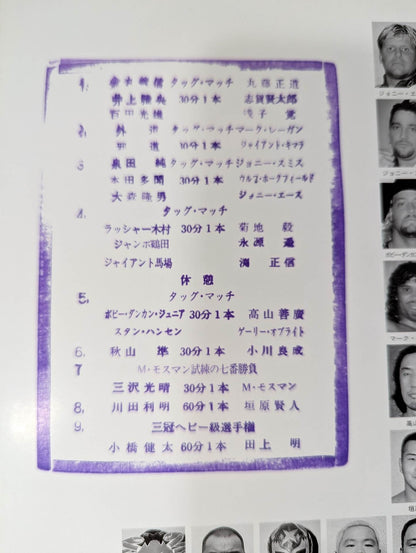 1. 金丸義信 タッグ・マッチ 丸藤正道
井上雅央 30分1本 志賀賢太郎
百田光雄 浅子 覚
2. 外 道 タッグ・マッチ マーク・レーガン
邪 道 30分1本 ジャイアント・キマラ
3. 泉田 純 タッグ・マッチ ジョニー・スミス
本田多聞 30分1本 ウルフ・ホークフィールド
大森隆男 ジョニー・エース
4. タッグ・マッチ
ラッシャー木村 30分1本 菊地 毅
ジャンボ鶴田 永源 遙
ジャイアント馬場 渕 正信
休 憩
5. タッグ・マッチ
ボビー・ダンカン・ジュニア 30分1本 高山善廣
スタン・ハンセン ゲーリー・オブライト
6. 秋山 準 30分1本 小川良成
7 M・モスマン試練の七番勝負
三沢光晴 30分1本 M・モスマン
8. 川田利明 60分1本 垣原賢人
9. 三冠ヘビー級選手権
小橋健太 60分1本 田上 明